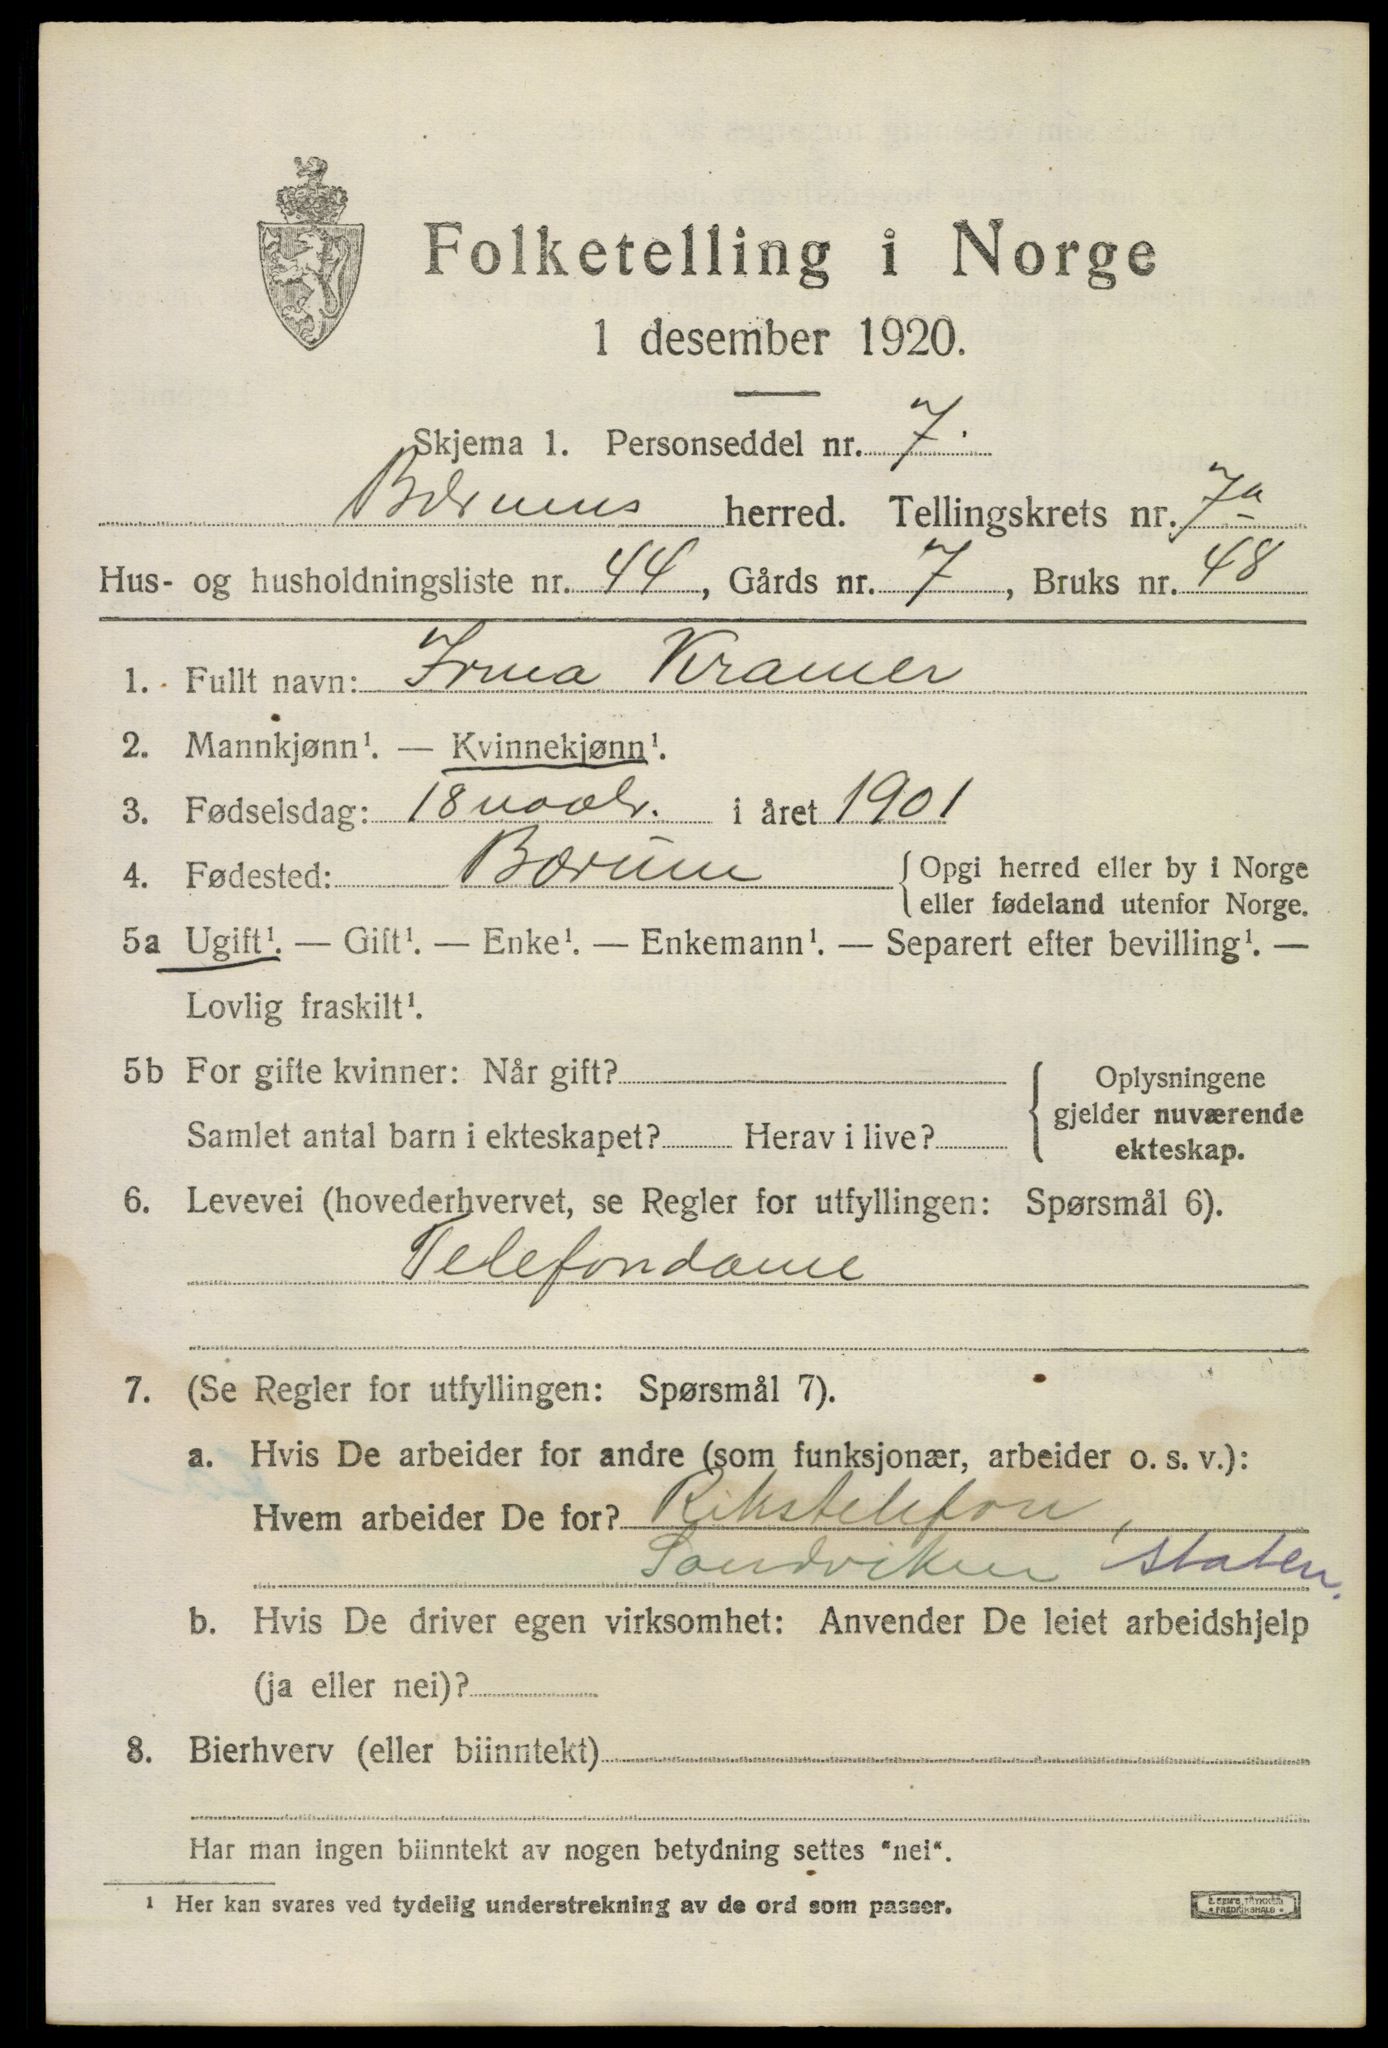 Folketelling i Norge
1 desember 1920.
Skjema 1. Personseddel nr. 7.
Bærums herred. Tellingskrets nr. 7a
Hus- og husholdningsliste nr. 44, Gårds nr. 7, Bruks nr. 48
1. Fullt navn: Irma Kramer
2. Mannkjønn¹. — Kvinnekjønn¹.
3. Fødselsdag: 18 i året 1901
4. Fødested: Bærum {Opgi herred eller by i Norge
eller fødeland utenfor Norge.
5a Ugift¹. — Gift¹. — Enke¹. — Enkemann¹. — Separert efter bevilling¹. —
Lovlig fraskilt¹.
5b For gifte kvinner: Når gift?
Samlet antal barn i ekteskapet? Herav i live?
{ Oplysningene
gjelder nuværende
ekteskap.
6. Levevei (hovederhvervet, se Regler for utfyllingen: Spørsmål 6).
Telefondame
7. (Se Regler for utfyllingen: Spørsmål 7).
a. Hvis De arbeider for andre (som funksjonær, arbeider o. s. v.):
Hvem arbeider De for? Rikstelefon,
Sandviken staten.
b. Hvis De driver egen virksomhet: Anvender De leiet arbeidshjelp
(ja eller nei)?
8. Bierhverv (eller biinntekt)
Har man ingen biinntekt av nogen betydning settes "nei".
¹ Her kan svares ved tydelig understrekning av de ord som passer.